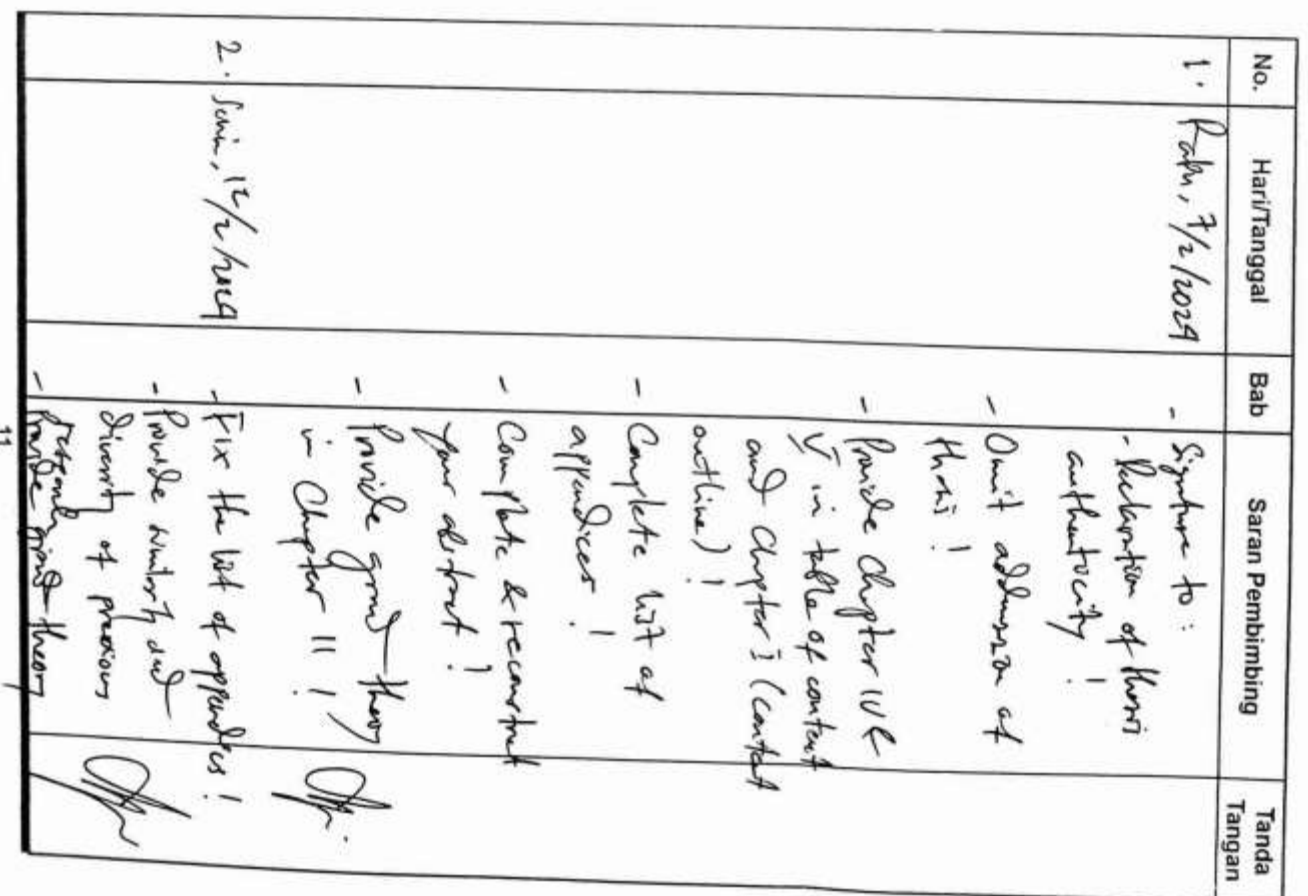 No. Hari/Tanggal Bab Saran Pembimbing Tanda Tangan
1. Rabu, 7/2/2024
- Signature to:
- Declaration of thesis
authentocity!
- Omit admission of
thesis!
- Provide Chapter IV &
V in table of content
and Chapter I (content
outline)!
- Complete list of
appendices!
- Complete & reconstruct
your abstract!
- Provide grand theory
in Chapter II!
2. Senin, 12/2/2024
- Fix the list of appendices!
- Provide and
of previous
- Provide grand theory
11